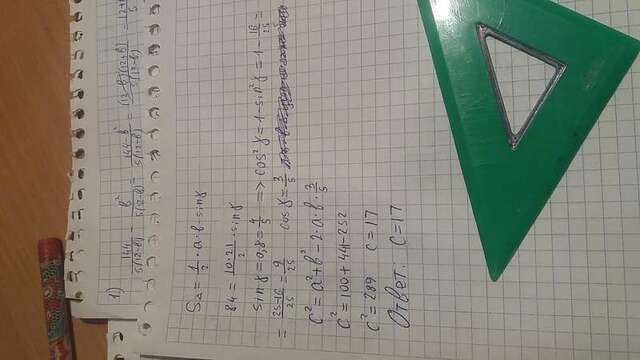 1) 144/5(12-b) - b²/5(12-b) = 144-b²/5(12-b) = (12-b)(12+b)/5(12-b) =
S△ = 1/2 · a·b·sinγ
84 = 10·21/2 · sinγ
sinγ = 0,8 = 4/5 => cos²γ = 1-sin²γ = 1 - 16/25 =
= 25-16/25 = 9/25 cosγ = 3/5
c² = a²+b²-2·a·b·3/5
c² = 100+441-252
c² = 289 c=17
Ответ: c=17